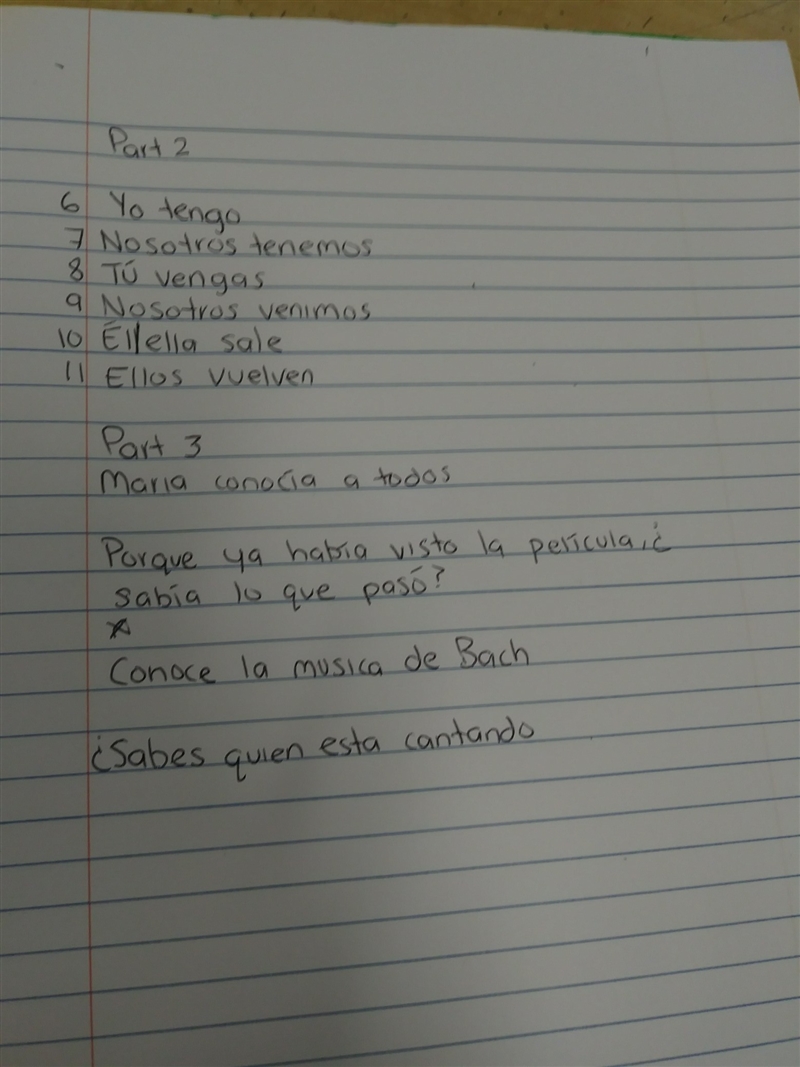 Part 2
6 Yo tengo
7 Nosotros tenemos
8 Tú vengas
9 Nosotros venimos
10 Él/ella sale
11 Ellos vuelven
Part 3
Maria conocía a todos
Porque ya había visto la perícula, ¿
sabía lo que pasó?
Conoce la musica de Bach
¿Sabes quien esta cantando